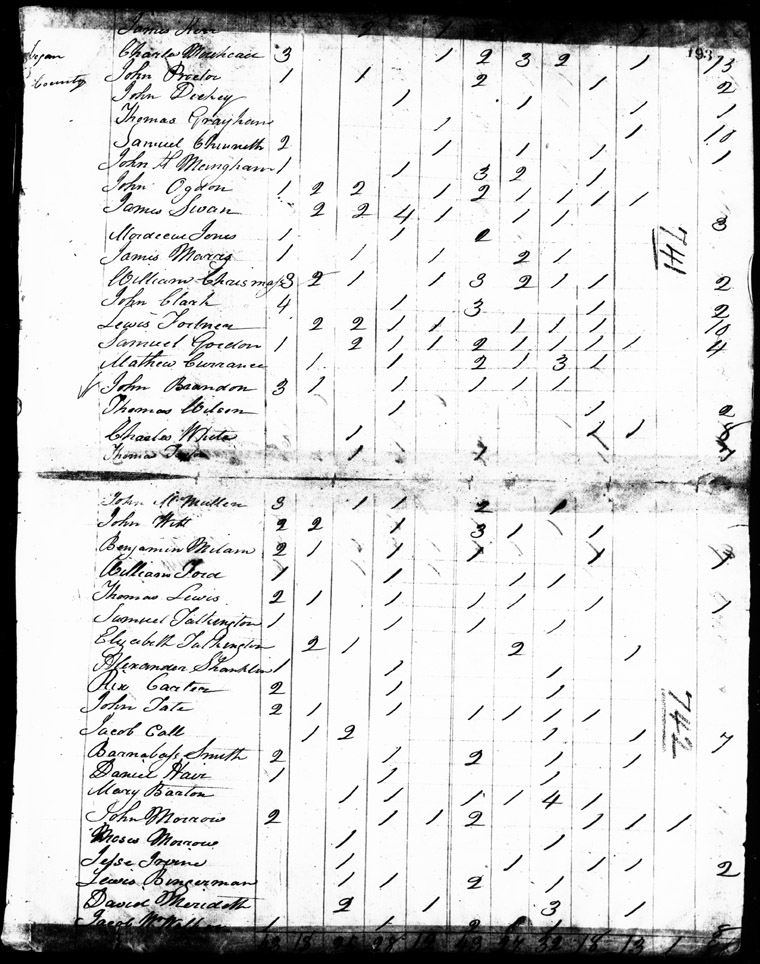 James
193
Charles 3 1 2 3 2 1 13
County John Proctor 1 1 2 1 2
John Dechey 1 1 1 1
Thomas Grayham 1 1
Samuel 2 1 1 1 10
John H 1 1 3 2 1 1
John Ogdon 1 2 2 1 2 1 1 1 1
James Swan 2 2 4 1 1 1
Mordecai Jones 1 1 2 3
James Morris 1 1 1 2 1
741
William Chrismass 3 2 1 1 3 2 1 1 2
John Clark 4 1 3 1 2
Lewis 2 2 1 1 1 1 1 10
Samuel Gordon 1 2 1 1 2 1 1 1 1 4
Mathew Currance 1 1 2 1 3 1
John Brandon 3 1 1 1 1 1
Thomas Wilson 1 1 2
Charles White 1 1
Thomas 1
John McMullen 3 1 1 2 1
John Hill 2 2 1 3 1 1
Benjamin Milam 2 1 1 1 1
William Ford 1 1 1 1
Thomas Lewis 2 1 1 1 1 1 1 1
Samuel Talkington 1 1 1 1
Elizabeth Talkington 2 1 2 1
Alexander Shanklin 1 1 1
Rix Carter 2 1 1
John Tate 2 1 1 1 1 1 1
742
Jacob Call 1 2 1 1 7
Barnabass Smith 2 1 2 1 1
Daniel Hair 1 1 1
Mary Barton 1 1 1 1 4 1
John Morrow 2 1 1 2 1 1 1
Moses Morrow 1 1
Jesse Irvine 1 1 1 1 2
Lewis Bingerman 1 1 2 1
David Merideth 2 1 3 1
Jacob